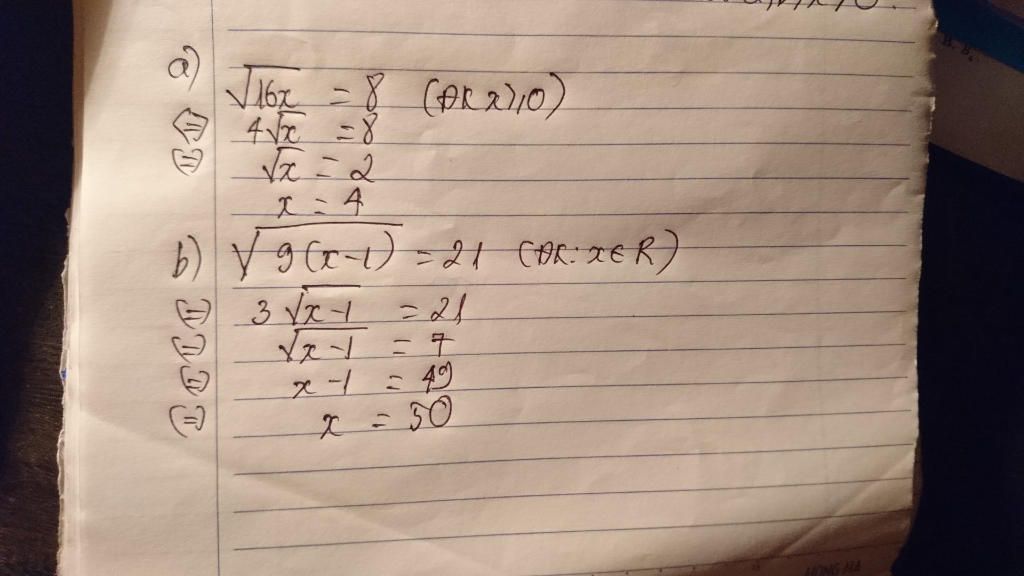 a)
√16x = 8 (ĐK x ⩾ 0)
⇔ 4√x = 8
⇔ √x = 2
x = 4
b) √9(x-1) = 21 (ĐK: x ∈ R)
⇔ 3√x-1 = 21
⇔ √x-1 = 7
⇔ x-1 = 49
⇔ x = 50
HONG HA